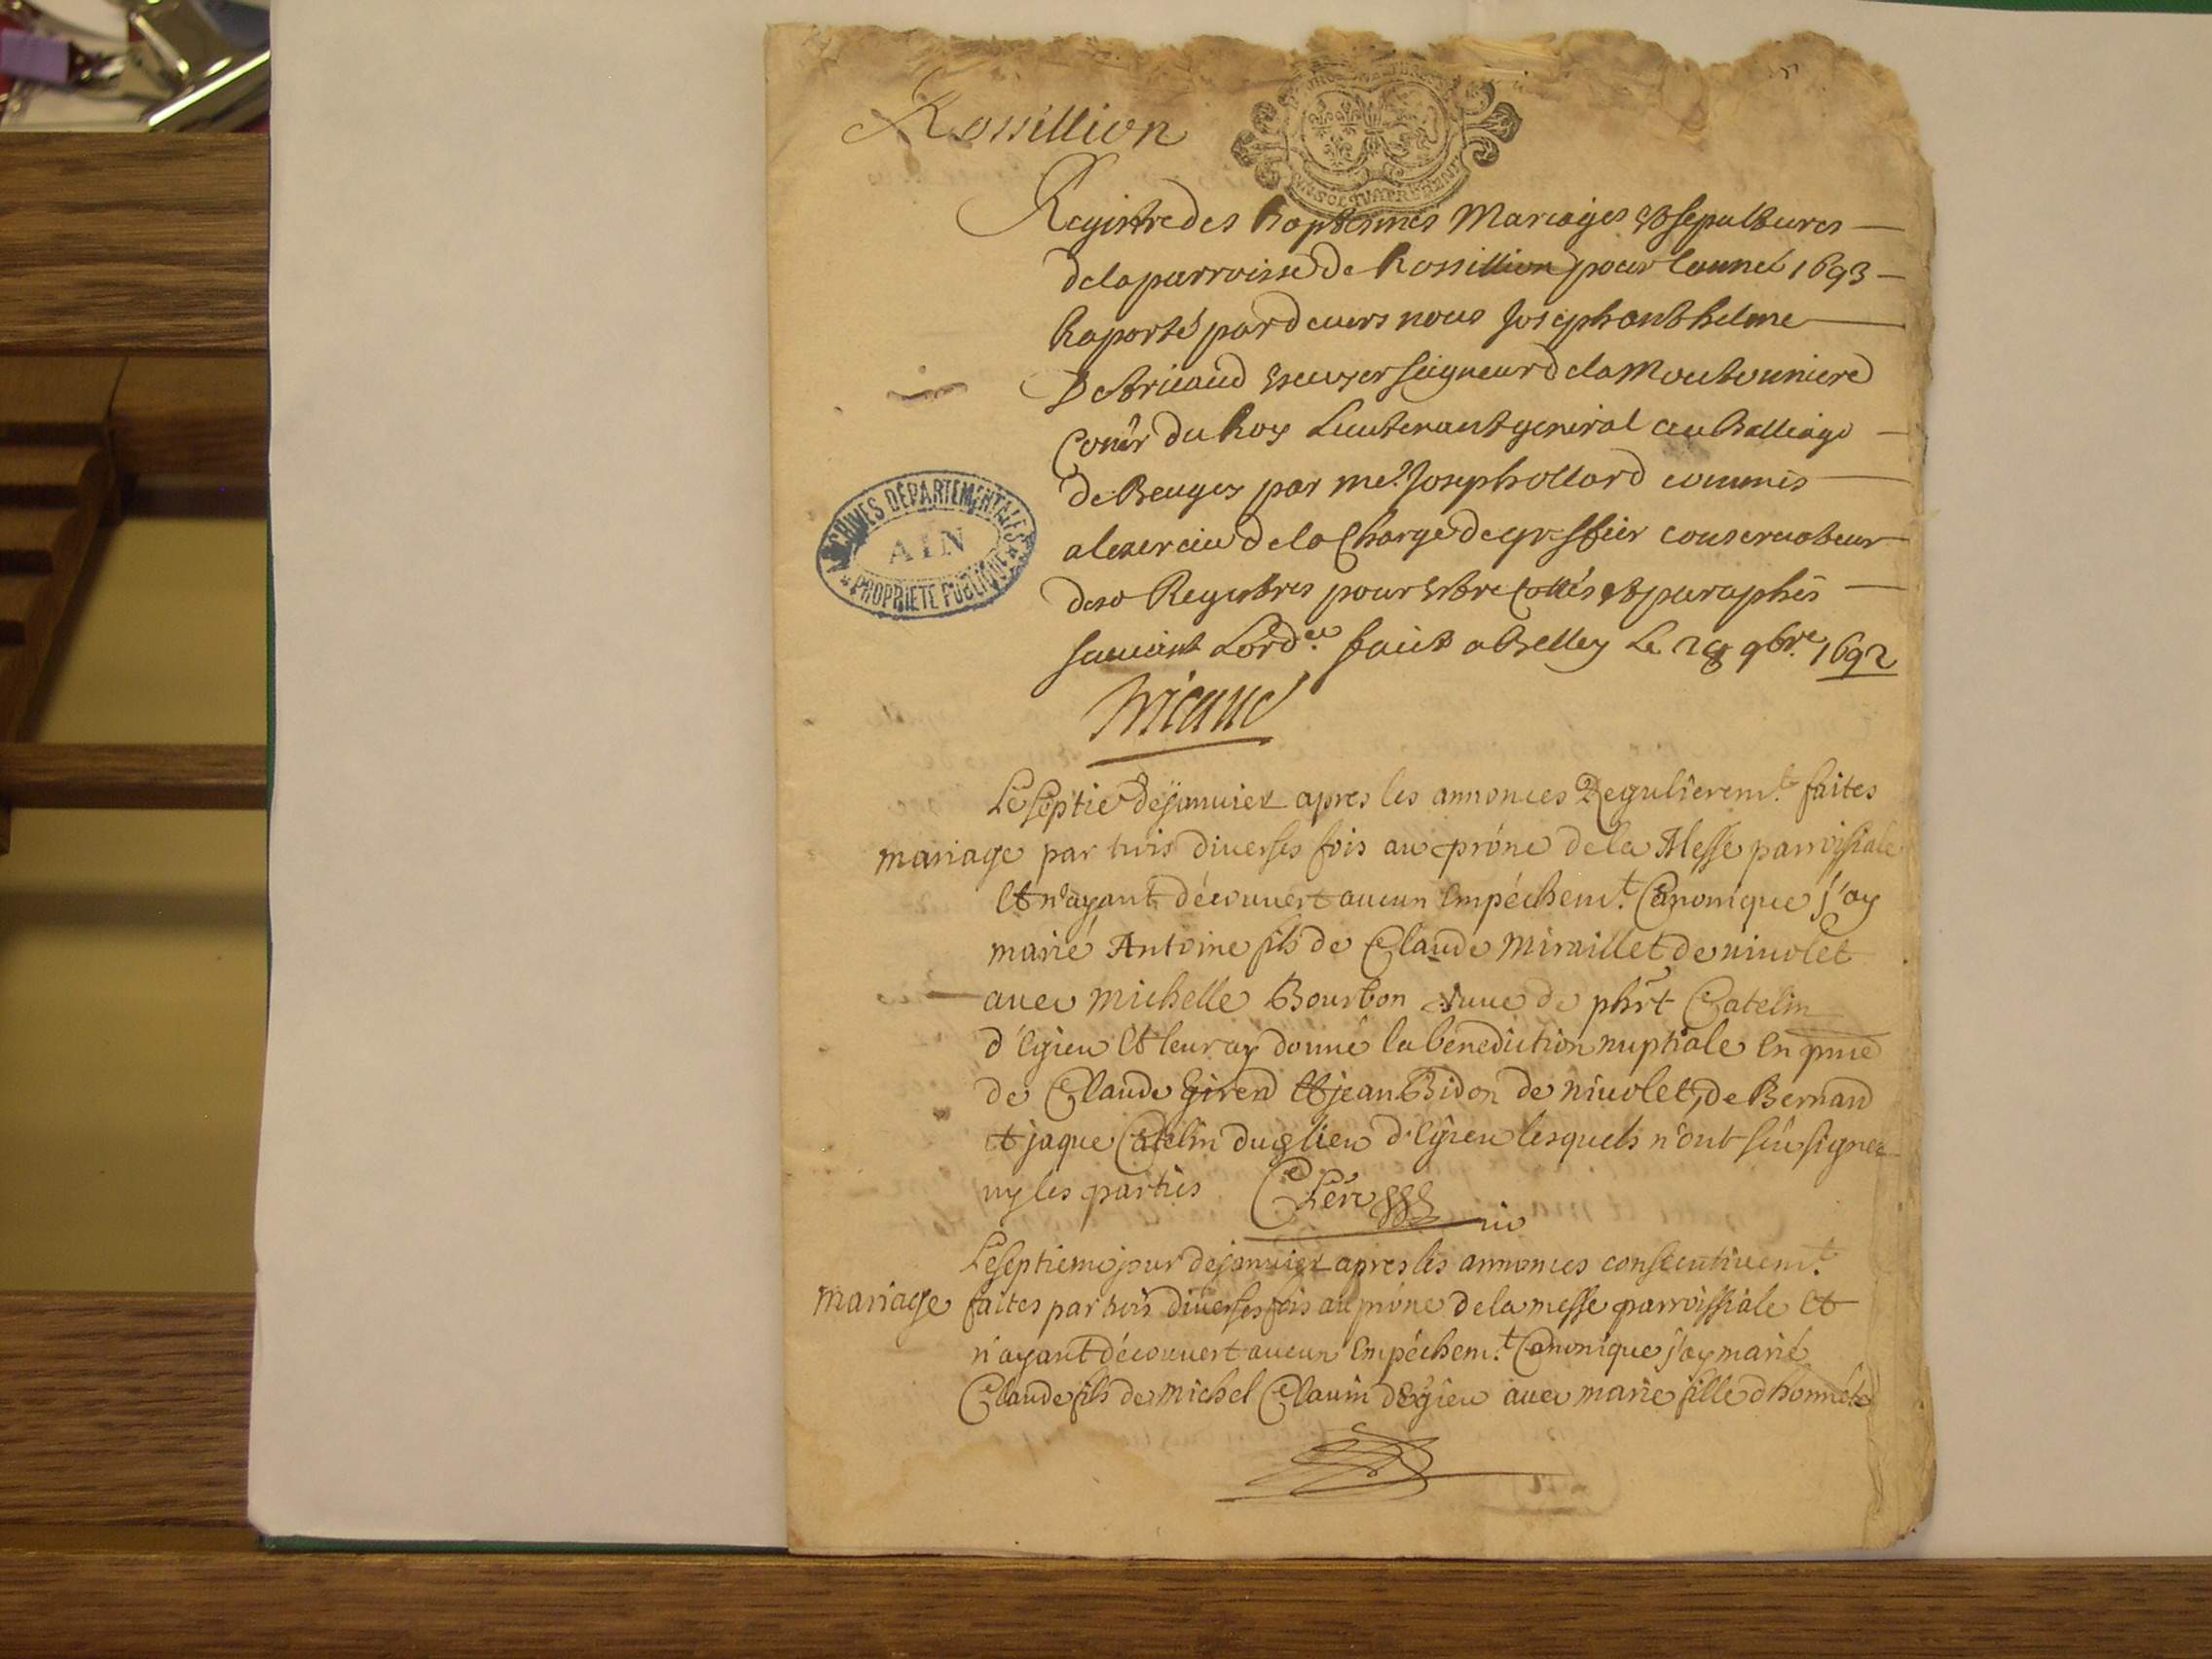 Rossillion
Registre des Baptesmes Mariages et sepultures
de la parroisse de Rossillion pour lannee 1693
Raporté pardevers nous Joseph anthelme
De Tricaud Escuyer seigneur de la
Coner du Roy Lieutenant general au Balliage
de Beugey par me. Joseph ollard commis
a lexercice de la Charge de greffier conservateur
deso Registres pour estre Cottés et paraphés
suivant Lord.ce faict a Belley Le 28 9bre. 1692
Tricaud
ARCHIVES DÉPARTEMENTALES
AIN
PROPRIÉTÉ PUBLIQUE
Le septie de janvier apres les annonces Regulierem.t faites
mariage par trois diverses fois au prône de la Messe parroissiale
Et n'ayant découvert aucun Empéchem.t Canonique j'ay
marié Antoine fils de Claude Miraillet de nivolet
avec Michelle Bourbon veuve de phrt Catelin
d'Egieu Et leur ay donné la bénédiction nuptiale En pnce
de Claude Girerd Et jean Bidon de nivolet, de Bernard
et jaque Catelin dud lieu d'Egieu lesquels n'ont sçu signer
ny les parties Clerc
Le septieme jour de janvier apres les annonces consecutivem.t
Mariage faites par trois diverses fois au prône de la messe parroissiale Et
n'ayant découvert aucun Empéchem.t Canonique j'ay marié
Claude fils de Michel Clavin d'Egieu avec marie fille d'honnête